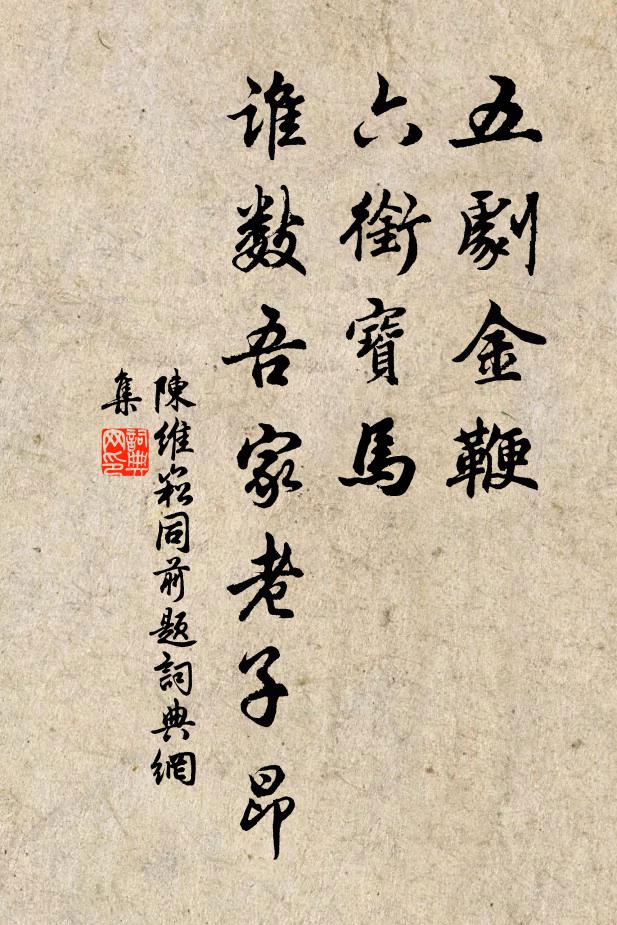 五劇金鞭
六衔寶馬
谁数吾家老子昂
陳維崧同前題詞典網
集
詞典
网印